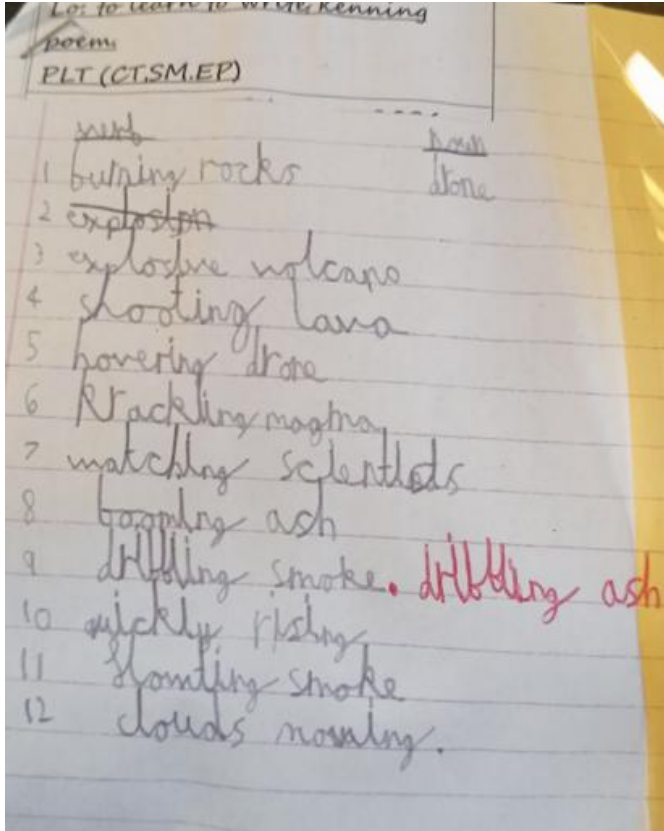 Lo: to learn to write kenning
poem.
PLT (CT,SM,EP)
verb noun
1 burning rocks drone
2 explosion
3 explosive volcano
4 shooting lava
5 hovering drone
6 krackling magma
7 watching scientists
8 booming ash
9 dribbling smoke. dribbling ash
10 quickly rising
11 smoke
12 clouds